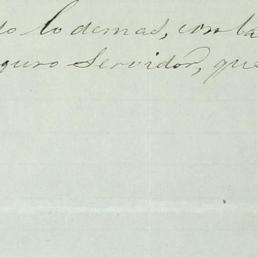 do lo demas, con la
guro Servidor, que